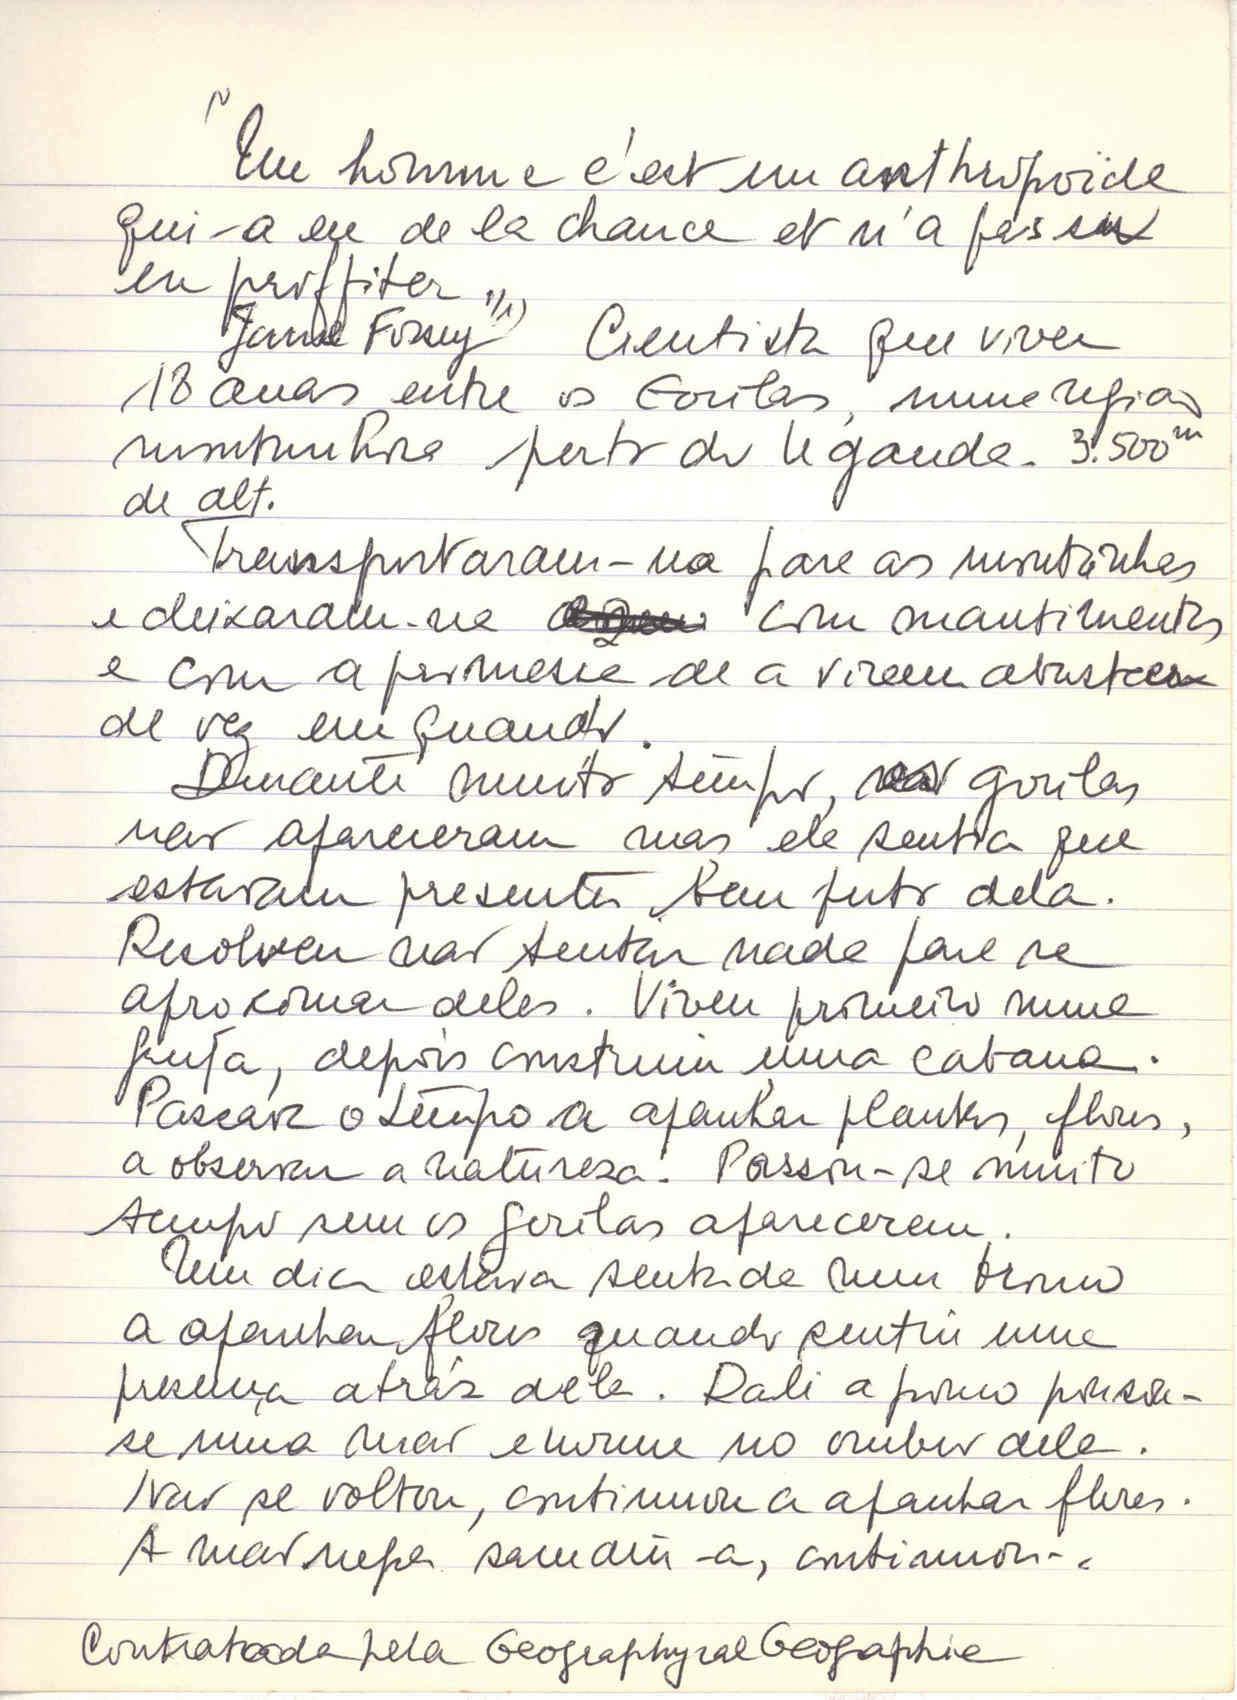 "Un homme c'est un anthropoïde
qui-a eu de la chance et n'a pas su
en proffiter"(1)
Jane Fossey Cientista que viveu
18 anos entre os Gorilas, numa região
montanhosa perto do Uganda. 3.500m
de alt.
Transportaram-na para as montanhas
e deixaram-na com mantimentos
e com a promessa de a virem abastecer
de vez em quando.
Durante muito tempo, gorilas
não apareceram mas ela sentia que
estavam presentes bem junto dela.
Resolveu não tentar nada para se
aproximar deles. Viveu primeiro numa
gruta, depois construiu uma cabana.
Passava o tempo a apanhar plantas, flores,
a observar a natureza. Passou-se muito
tempo sem os gorilas aparecerem.
Um dia estava sentada num tronco
a apanhar flores quando sentiu uma
presença atrás dela. Dali a pouco pousou-
se uma mão enorme no ombro dela.
Não se voltou, continuou a apanhar flores.
A mão negra sacudiu-a, continuou-
Contratada pela Geographycal Geographie